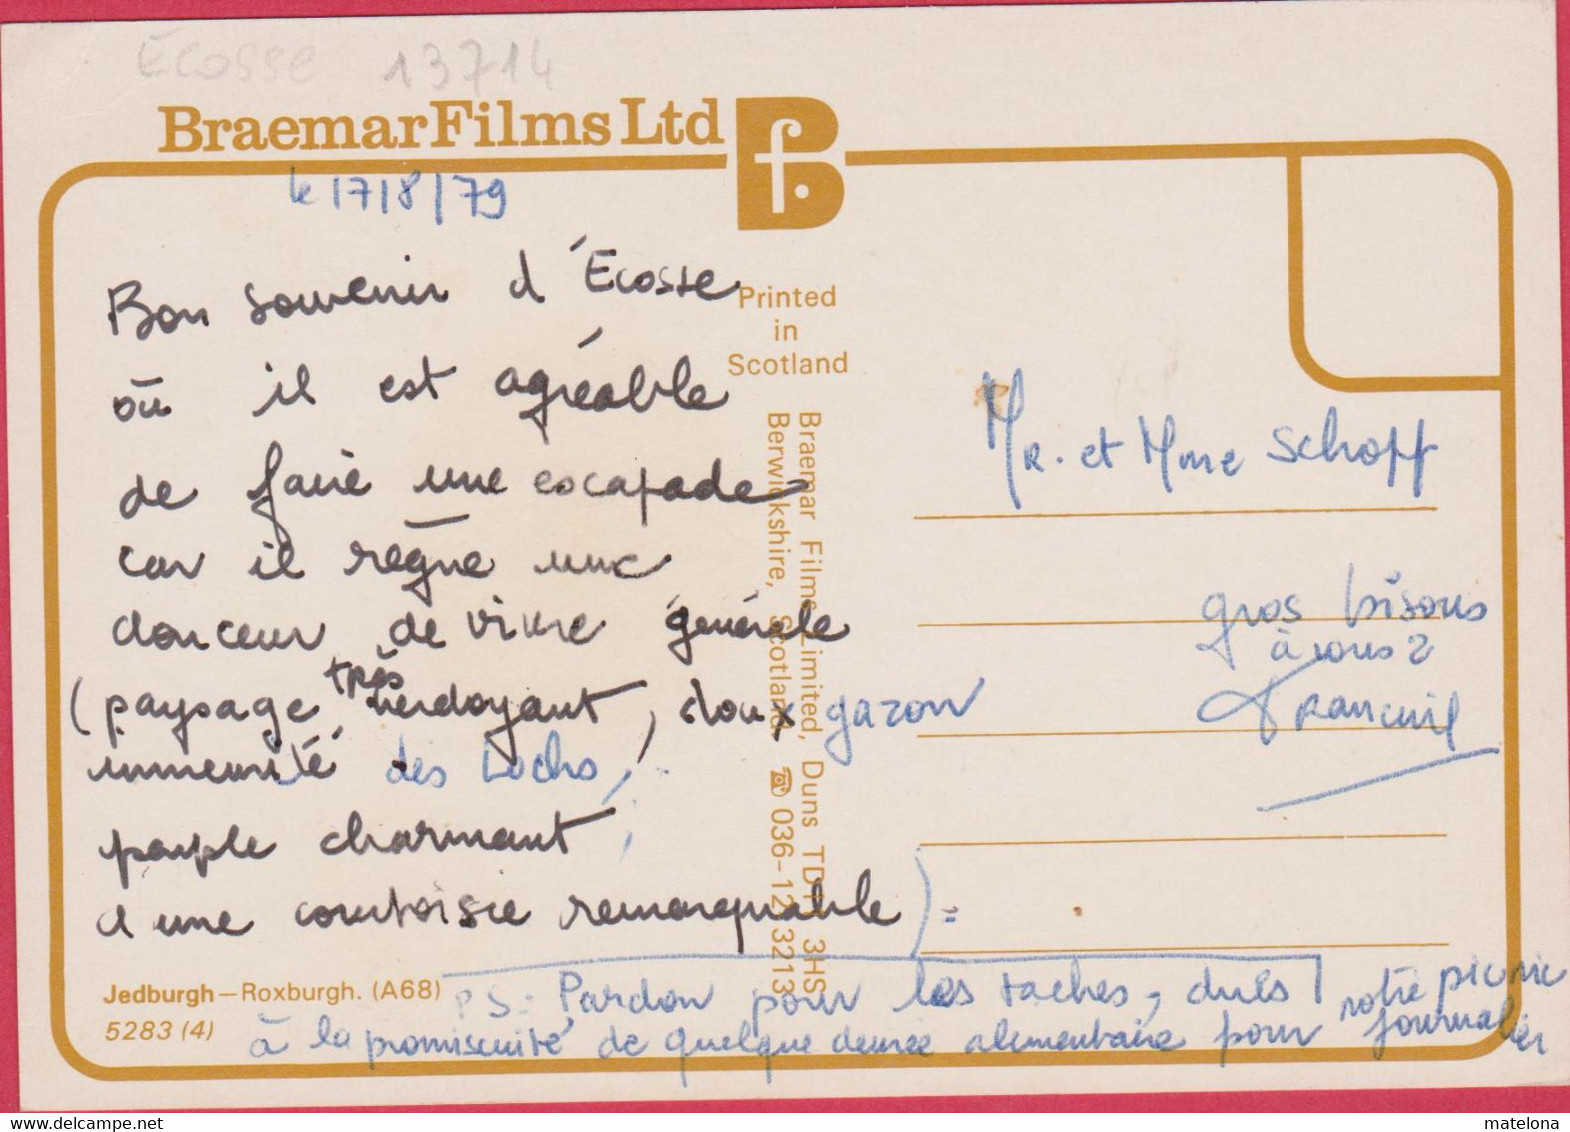 Ecosse 13714
Braemar Films Ltd
Bf.
le 17/8/79
Bon souvenir d'Ecosse
où il est agréable
de faire une escapade
car il règne une
douceur de vivre générale
(paysage très verdoyant, doux gazon
immensité des Lochs,
peuple charmant,
d'une courtoisie remarquable) =
Printed
in
Scotland
Braemar Films Limited, Duns TD11 3HS
Berwickshire, Scotland. ☎ 036-12 3213
MR. et Mme Schoff
gros bisous
à vous 2
Jedburgh—Roxburgh. (A68)
5283 (4)
PS: Pardon pour les taches, dues
à la promiscuité de quelque denrée alimentaire pour
notre picnic
journalier
delcampe.net
matelona